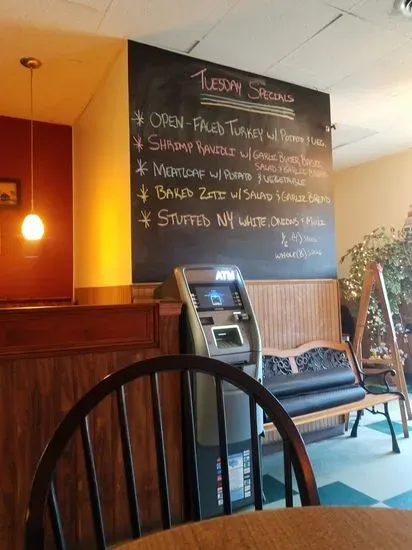 Tuesday Specials
* Open-Faced Turkey w/ Potato & Veg.
* Shrimp Ravioli w/ Garlic Butter, Basil
Salad & Garlic Bread
* Meatloaf w/ Potato & Vegetable
* Baked Ziti w/ Salad & Garlic Bread
* Stuffed NY White, Onions &
1/2
Whole (8)
ATM